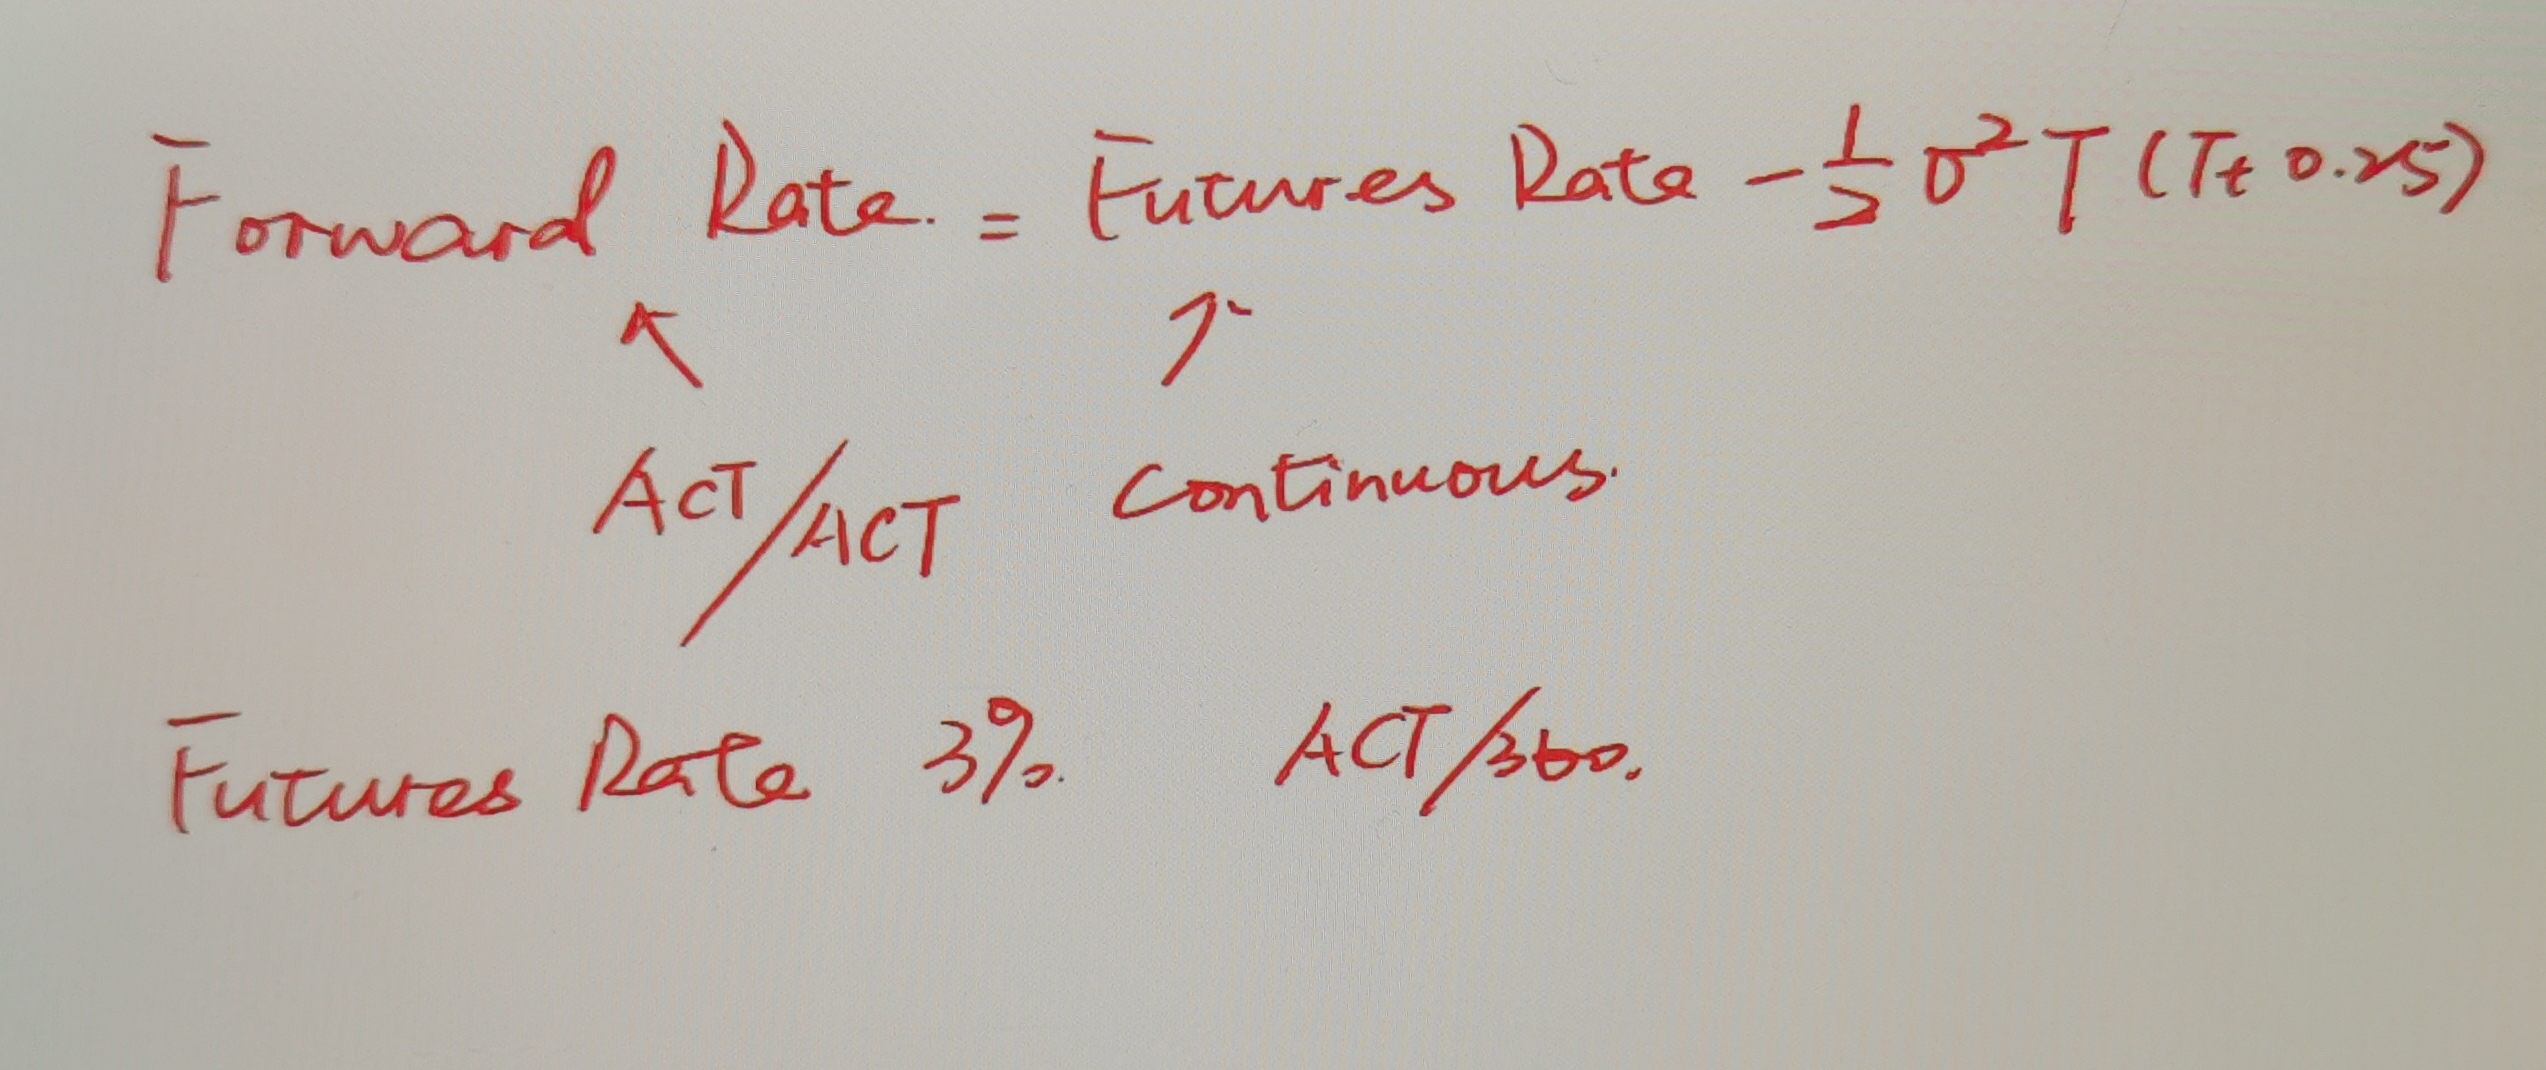 Forward Rate. = Futures Rate - 1/2 σ² T (T+ 0.25)
ACT/ACT continuous.
Futures Rate 3%. ACT/360.